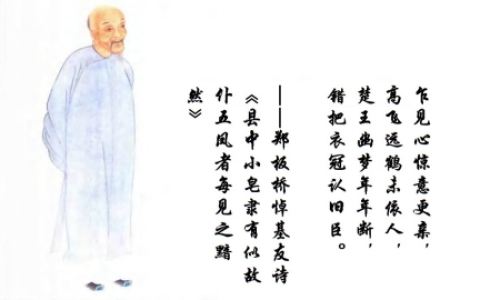 乍见心惊意更亲，
高飞远鹤未依人，
楚王幽梦年年断，
错把衣冠认旧臣。
——郑板桥悼基友诗
《县中小皂隶有似故
仆五凤者每见之黯
然》